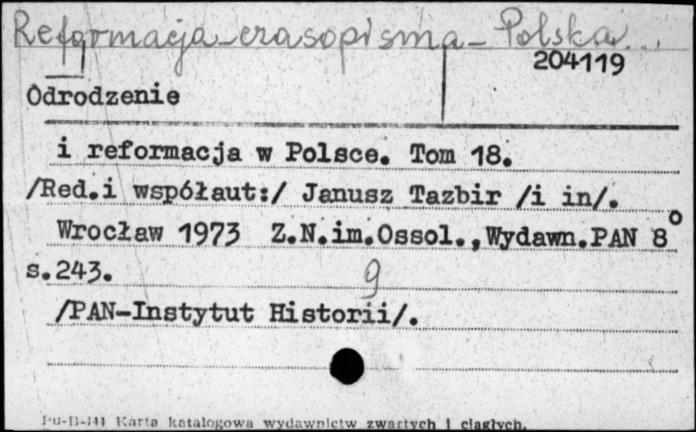 Reformacja - czasopisma - Polska...
204119
Odrodzenie
i reformacja w Polsce. Tom 18.
/Red.i współaut:/ Janusz Tazbir /i in/.
Wrocław 1973 Z.N.im.Ossol.,Wydawn.PAN 8°
s.243.
9
/PAN-Instytut Historii/.
Pu-B-141 Karta katalogowa wydawnictw zwartych i ciągłych.